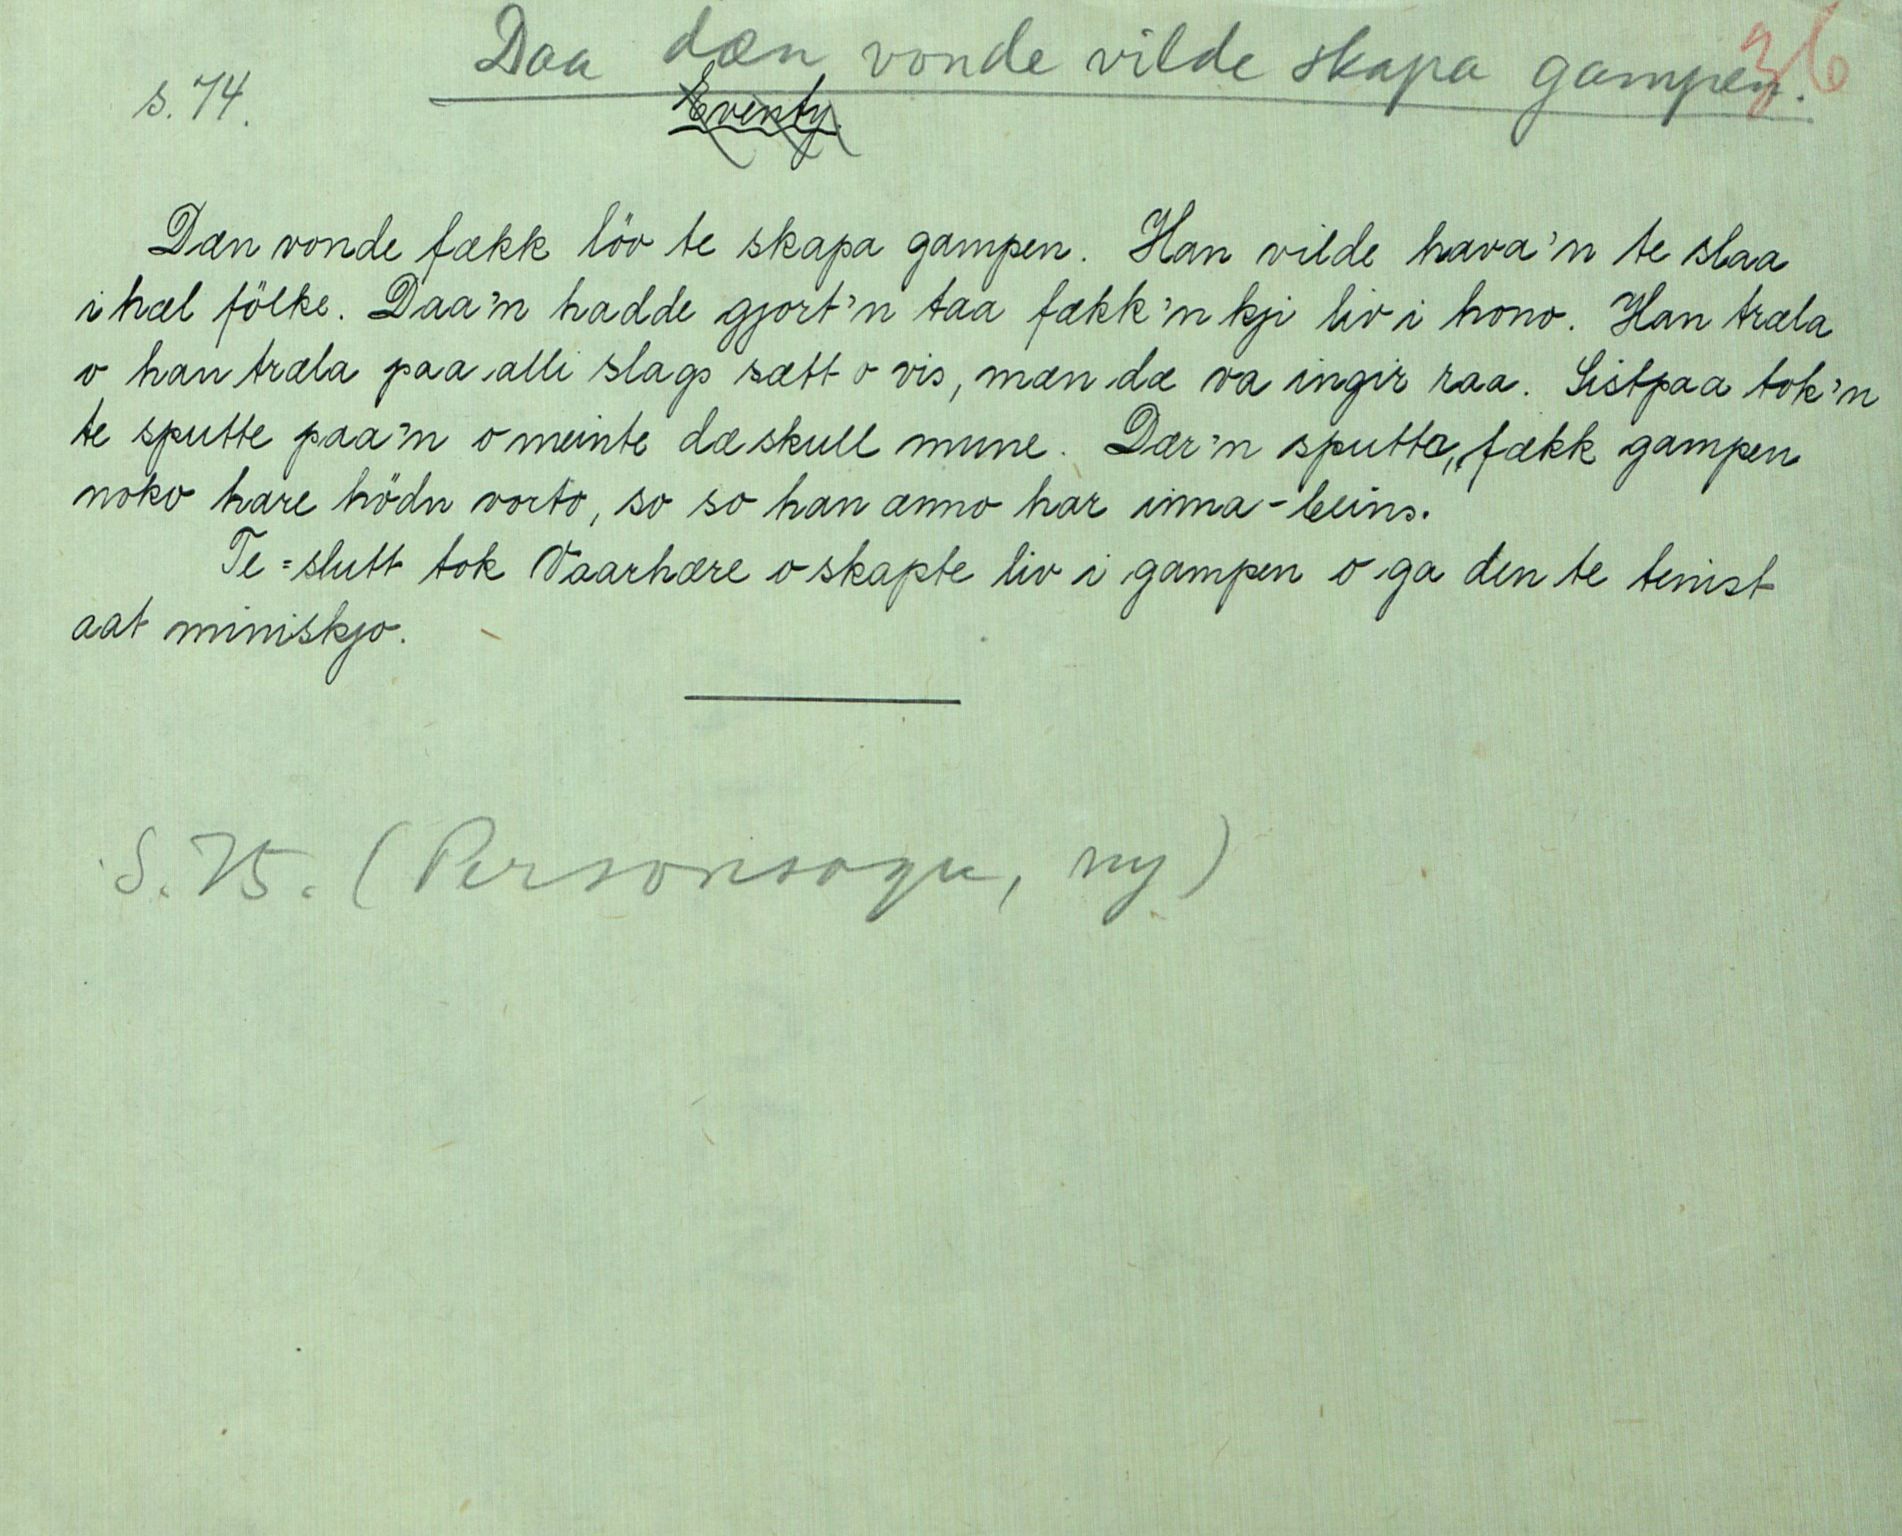 36
Daa dæn vonde vilde skapa gampen.
s. 74.
Eventy.
Dæn vonde fækk löv te skapa gampen. Han vilde hava'n te slaa
ihæl fölke. Daa'n hadde gjort'n taa fækk'n kji liv i hono. Han træla
o han træla paa alli slags sætt o vis, mæn dæ va ingir raa. Sistpaa tok'n
te sputte paa'n o meinte dæ skull mune. Dær'n sputta, fækk gampen
noko hare hödn vorto, so so han ænno har inna-beins.
Te=slutt tok Vaarhære o skapte liv i gampen o ga den te tenist
aat miniskjo.
S. 75. (Personsogu, ny)